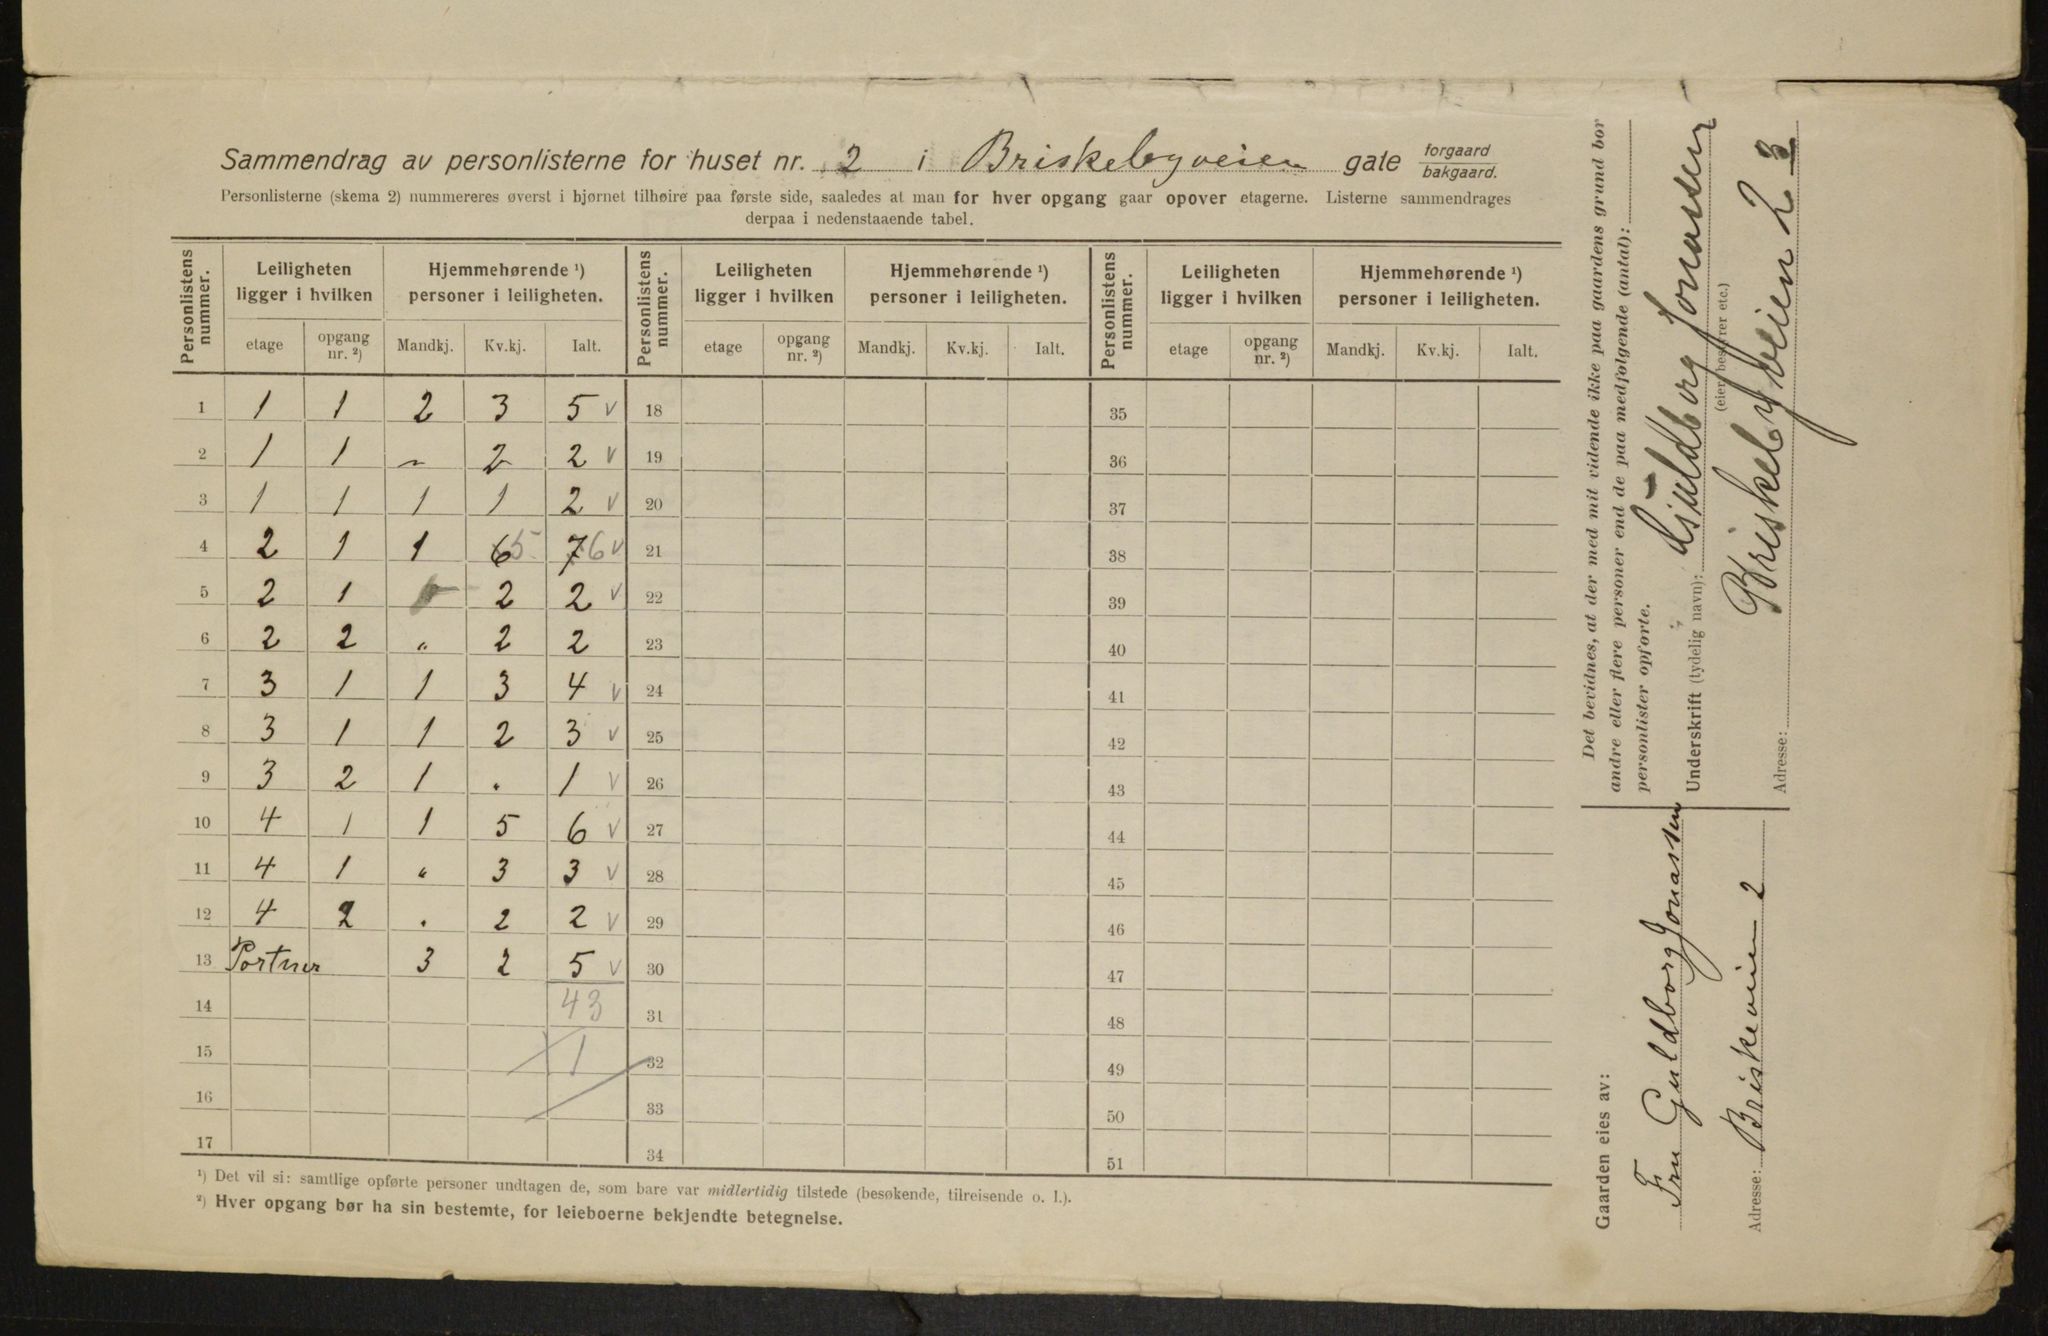 Sammendrag av personlisterne for huset nr. 2 i Briskebyveien gate forgaard/bakgaard.
Personlisterne (skema 2) nummereres øverst i hjørnet tilhøire paa første side, saaledes at man for hver opgang gaar opover etagerne. Listerne sammendrages
derpaa i nedenstaaende tabel.
Personlistens nummer. Leiligheten ligger i hvilken Hjemmehørende ¹) personer i leiligheten. Personlistens nummer. Leiligheten ligger i hvilken Hjemmehørende ¹) personer i leiligheten. Personlistens nummer. Leiligheten ligger i hvilken Hjemmehørende ¹) personer i leiligheten.
etage opgang nr. ²) Mandkj. Kv.kj. Ialt. etage opgang nr. ²) Mandkj. Kv.kj. Ialt. etage opgang nr. ²) Mandkj. Kv.kj. Ialt.
1 1 1 2 3 5 v 18 35
2 1 1 " 2 2 v 19 36
3 1 1 1 1 2 v 20 37
4 2 1 1 6 5 7 6 v 21 38
5 2 1 2 2 v 22 39
6 2 2 " 2 2 23 40
7 3 1 1 3 4 v 24 41
8 3 1 1 2 3 v 25 42
9 3 2 1 " 1 v 26 43
10 4 1 1 5 6 v 27 44
11 4 1 " 3 3 v 28 45
12 4 2 " 2 2 v 29 46
13 Portner 3 2 5 v 30 47
14 43 31 48
15 1 32 49
16 33 50
17 34 51
¹) Det vil si: samtlige opførte personer undtagen de, som bare var midlertidig tilstede (besøkende, tilreisende o. l.).
²) Hver opgang bør ha sin bestemte, for leieboerne bekjendte betegnelse.
Det bevidnes, at der med mit vidende ikke paa gaardens grund bor
andre eller flere personer end de paa medfølgende (antal):
personlister opførte.
Underskrift (tydelig navn): Guldborg Jonassen
(eier, bestyrer etc.)
Adresse: Briskebyveien 2
Gaarden eies av:
Fru Guldborg Jonassen
Adresse: Briskeveien 2